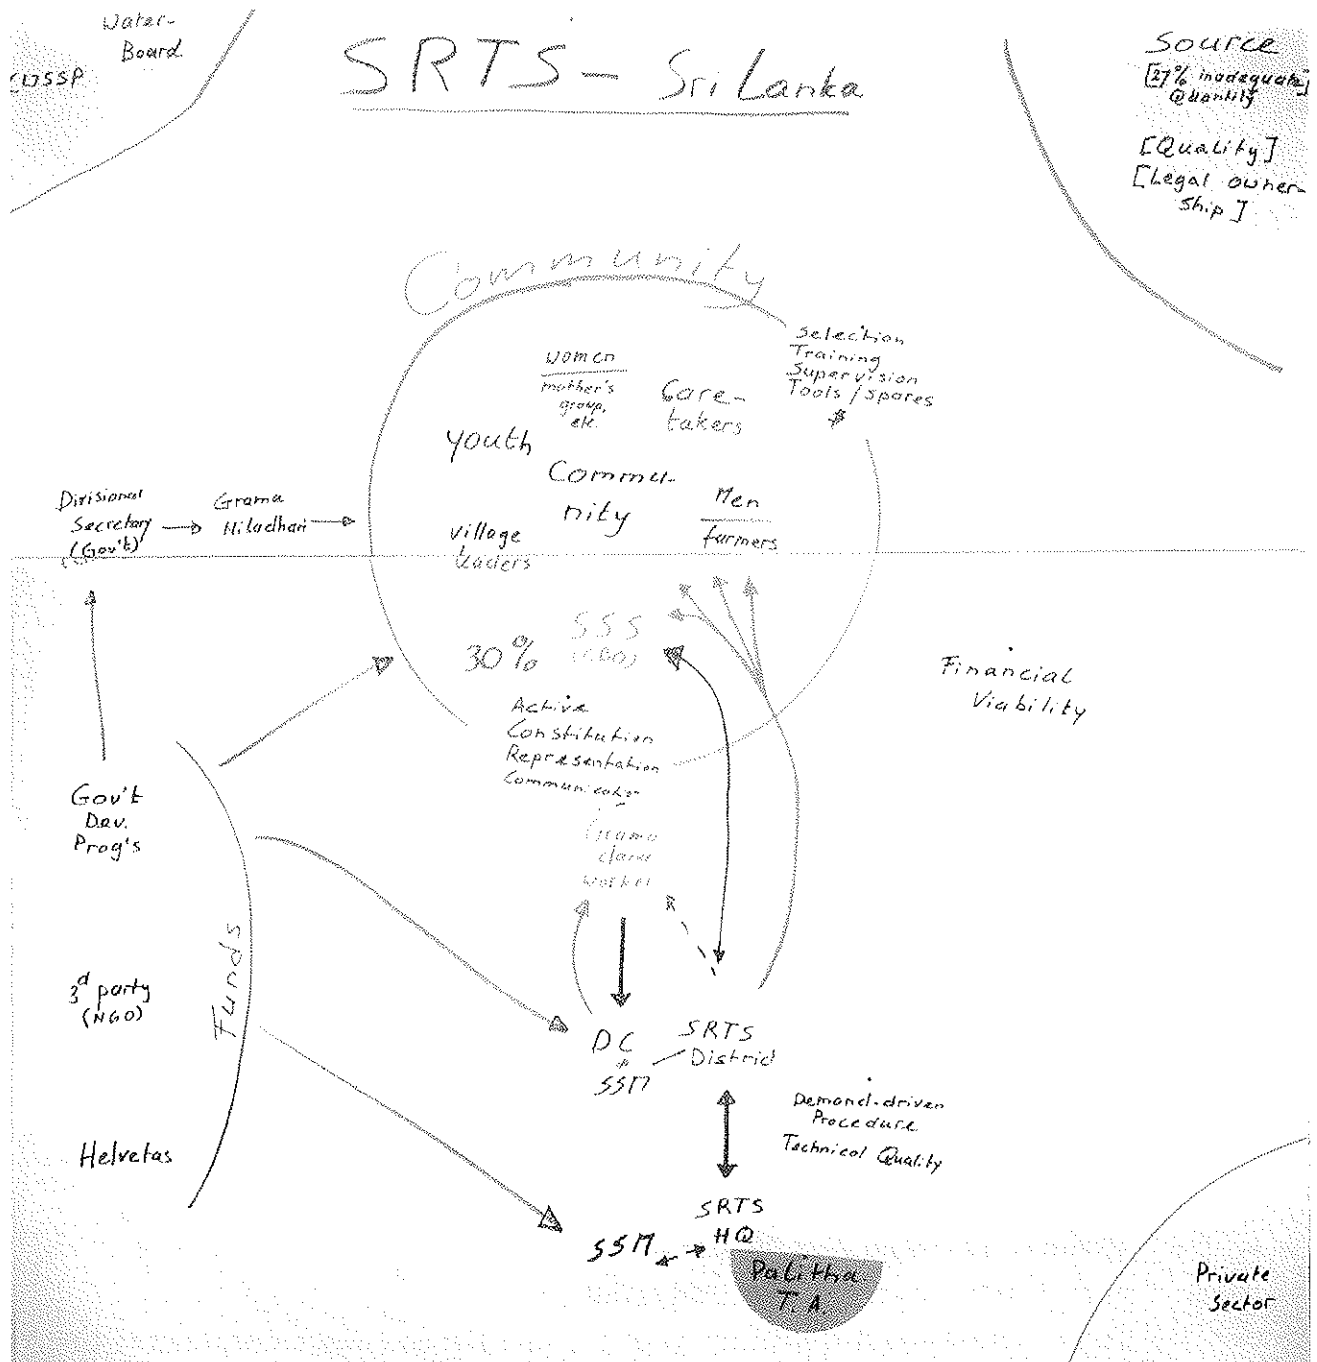 Water-
Board
SRTS - Sri Lanka
Source
[27% inadequate]
Quantity
[Quality]
[Legal owner-
ship]
Community
Selection
Training
Supervision
Tools / spares
Women
mother's
group,
etc.
Care-
takers
Youth
Commu-
nity
Men
farmers
Village
leaders
Divisional
Secretary
(Gov't)
Grama
Niladhari
30%
SSS
(CBO)
Active
Constitution
Representation
Financial
Viability
Gov't
Dev.
Prog's
worker
Funds
3d party
(NGO)
DC
SSM
SRTS
District
Demand-driven
Procedure
Technical Quality
Helvetas
SSM
SRTS
HQ
Palitha
T.A.
Private
Sector